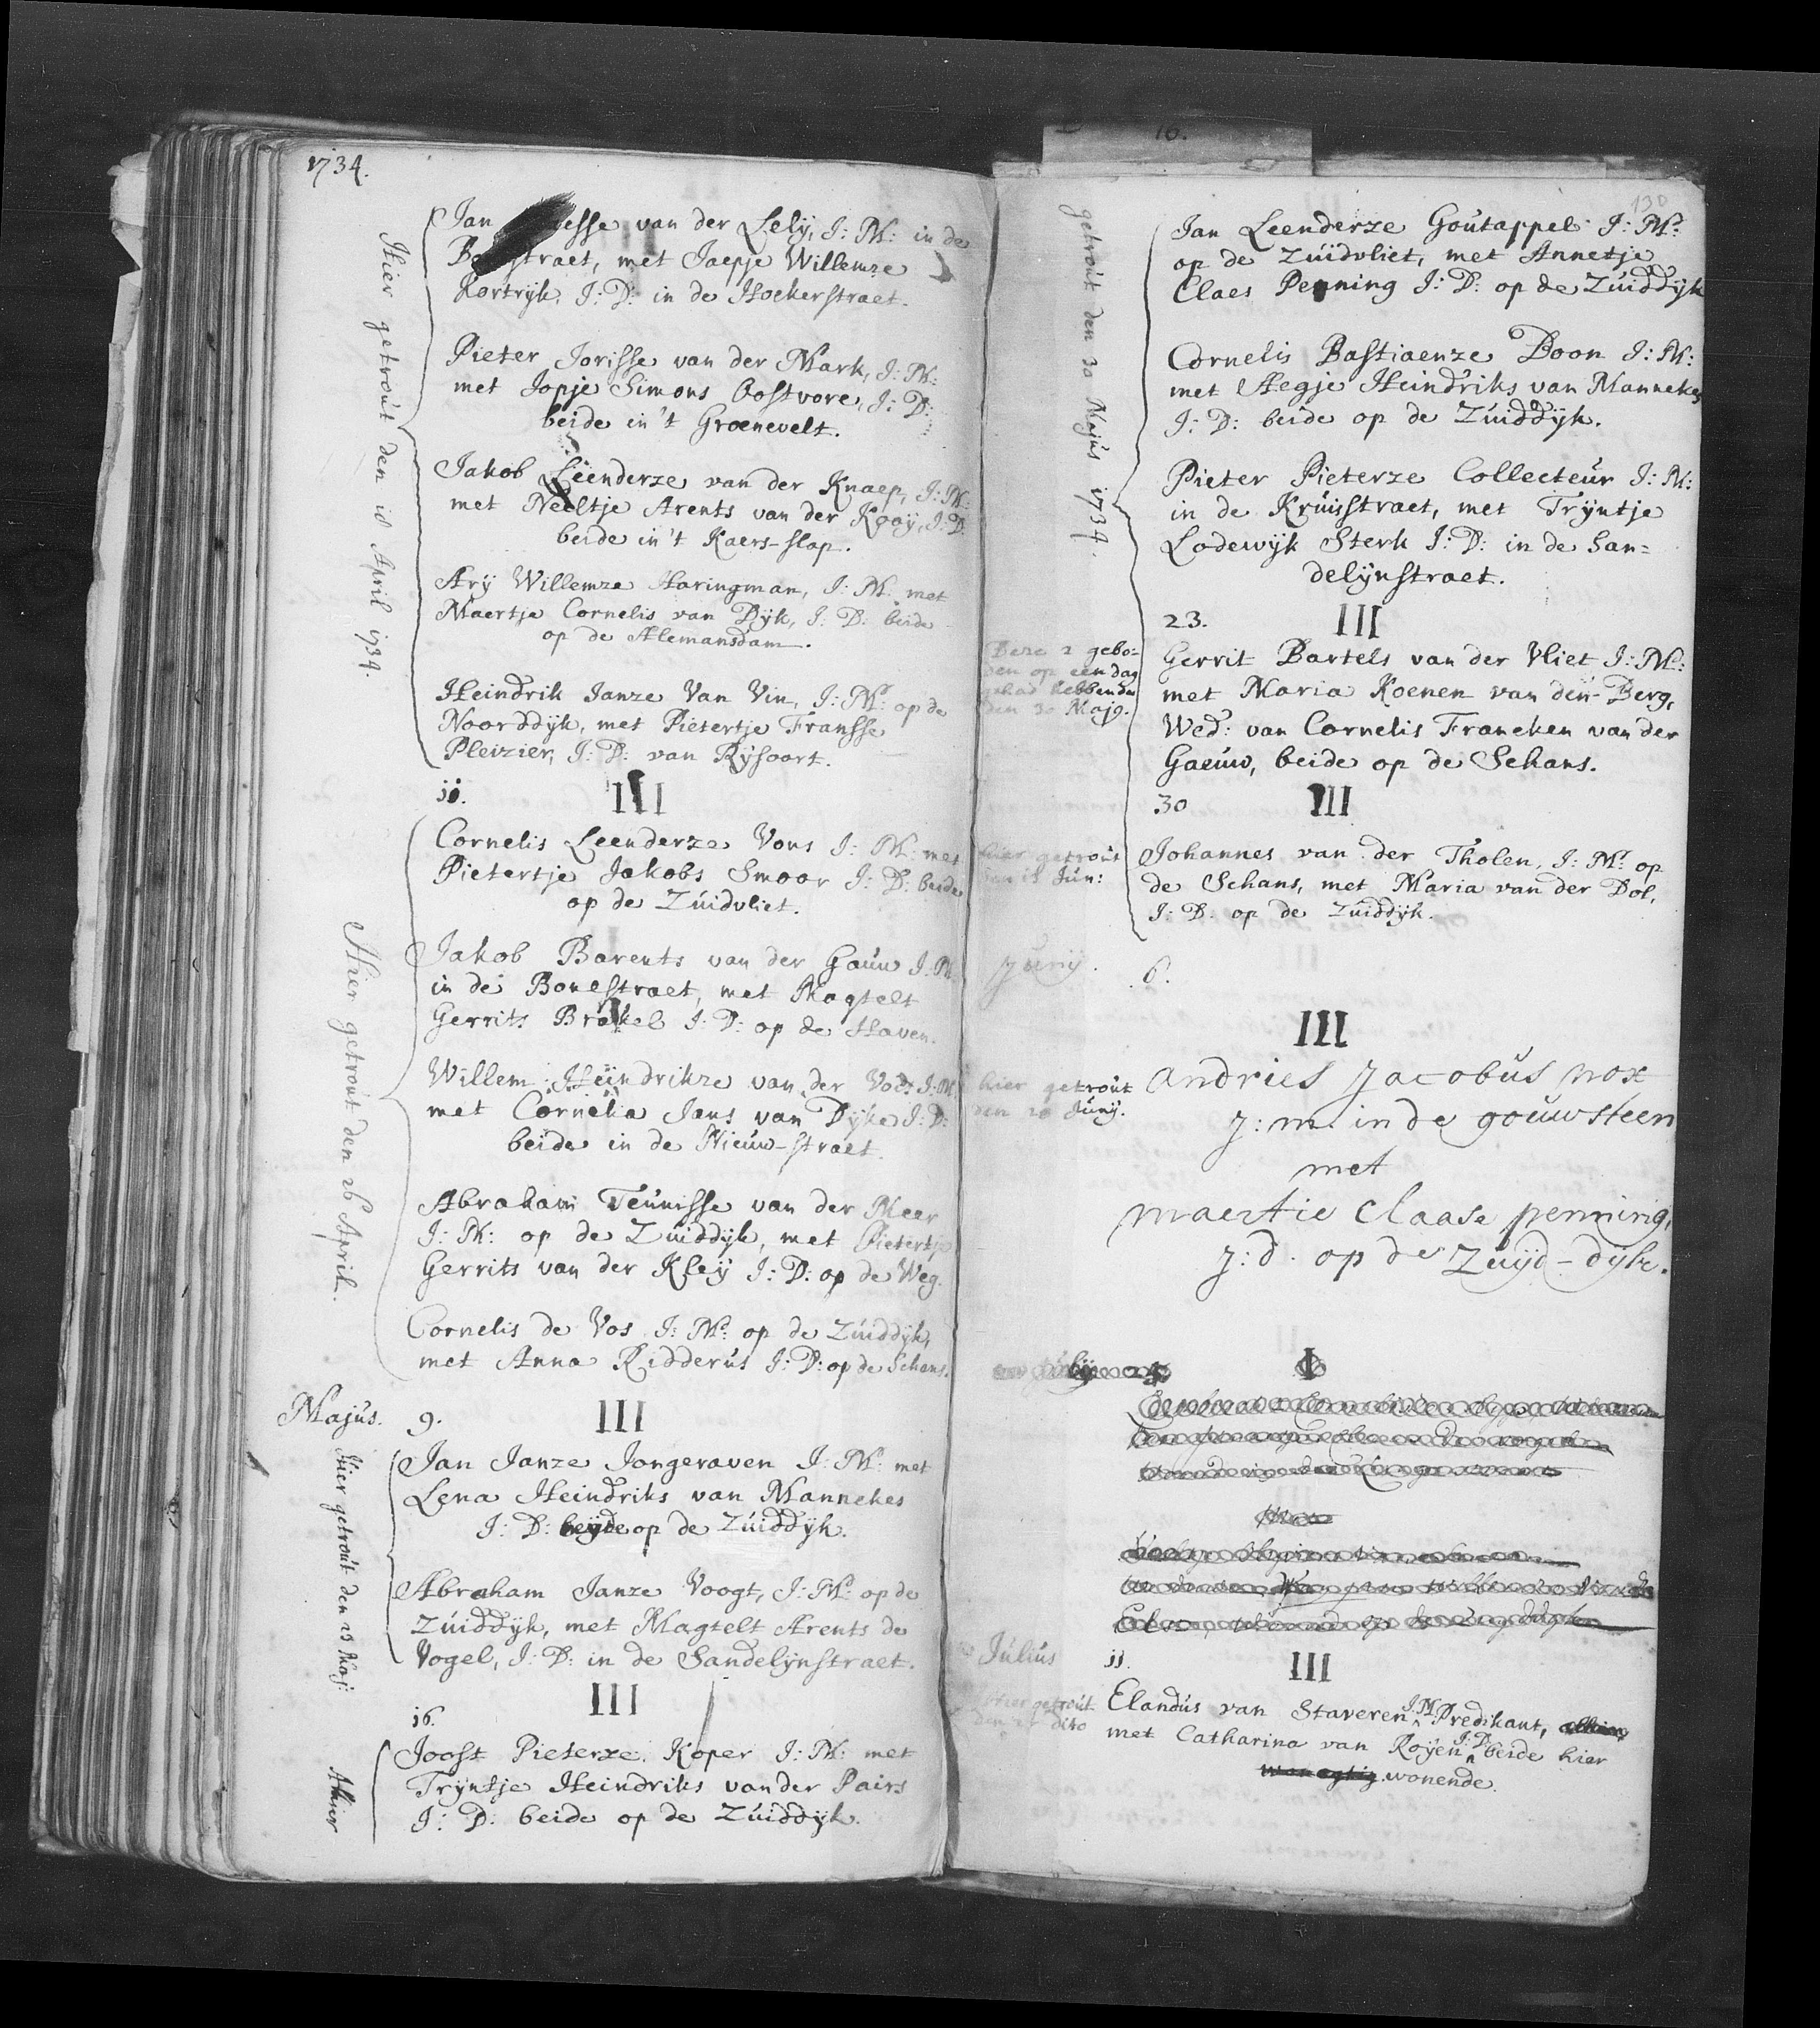 1734.
Hier getrout den 18 April 1734.
Jan esse van der Lely, J: M: in de
straet, met Jaepje Willemze
Kortryk, J: D: in de Hoekerstraet.
Pieter Jorisse van der Mark, J: M:
met Jopje Simons Oostvore, J: D:
beide in 't Groenevelt.
Jakob Leenderze van der Knaep, J: M:
met Neeltje Arents van der Kooÿ, J: D:
beide in 't Kaers-slop.
Arÿ Willemze Haringman, J: M: met
Maertje Cornelis van Dÿk, J: D: beide
op de Alemansdam.
Heindrik Janze Van Vin, J: M: op de
Noorddÿk, met Pietertje Fransse
Pleizier, J: D: van Rÿsoort.
11. III
Hier getrout den 26 April.
Cornelis Leenderze Vons J: M: met
Pietertje Jakobs Smoor J: D: beide
op de Zuidvliet.
Jakob Barents van der Gauw J: M:
in de Bonestraet, met Magtelt
Gerrits Brakel J: D: op de Haven.
Willem Heindrikze van der Voet J: M:
met Cornelia Jans van Dyke J: D:
beide in de Nieuw-straet.
Abraham Teunisse van der Meer
J: M: op de Zuiddÿk, met Pietertje
Gerrits van der Kleÿ J: D: op de Weg.
Cornelis de Vos J: M: op de Zuiddÿk,
met Anna Ridderus J: D: op de Schans.
Majus. 9. III
Hier getrout den 23 Maj:
Jan Janze Jongeraven J: M: met
Lena Heindriks van Mannekes
J: D: beyde op de Zuiddÿk.
Abraham Janze Voogt, J: M: op de
Zuiddÿk, met Magtelt Arents de
Vogel, J: D: in de Sandelÿnstraet.
16. III
Alhier
Joost Pieterze Koper J: M: met
Trÿntje Heindriks van der Pairs
J: D: beide op de Zuiddÿk.
130
getrout den 30 Majus 1734.
Jan Leenderze Goutappel J: M:
op de Zuidvliet, met Annetje
Claes Penning J: D: op de Zuiddÿk
Cornelis Bastiaenze Boon J: M:
met Aegje Heindriks van Mannekes
J: D: beide op de Zuiddÿk.
Pieter Pieterze Collecteur J: M:
in de Kruisstraet, met Trÿntje
Lodewÿk Sterk J: D: in de San=
delÿnstraet.
23. III
Deze 2 gebo=
den op een dag
gehad hebbende
den 30 Majo.
Gerrit Bartels van der Vliet J: M:
met Maria Koenen van den Berg,
Wed: van Cornelis Francken van der
Gaeuw, beide op de Schans.
30 III
hier getrout
den 13 Jun:
Johannes van der Tholen, J: M: op
de Schans, met Maria van der Dol,
J: D: op de Zuiddÿk.
Junij. 6.
III
hier getrout
den 20 Junÿ.
andries Jacobus nox
J: m. in de gouwsteen
met
maertie Claase penning,
J: d. op de Zuÿd-dÿk.
I
Julius 11. III
Hier getrout
den 25 dito
Elandus van Staveren J. M. Predikant,
met Catharina van Royen J: D: beide hier
wonende.